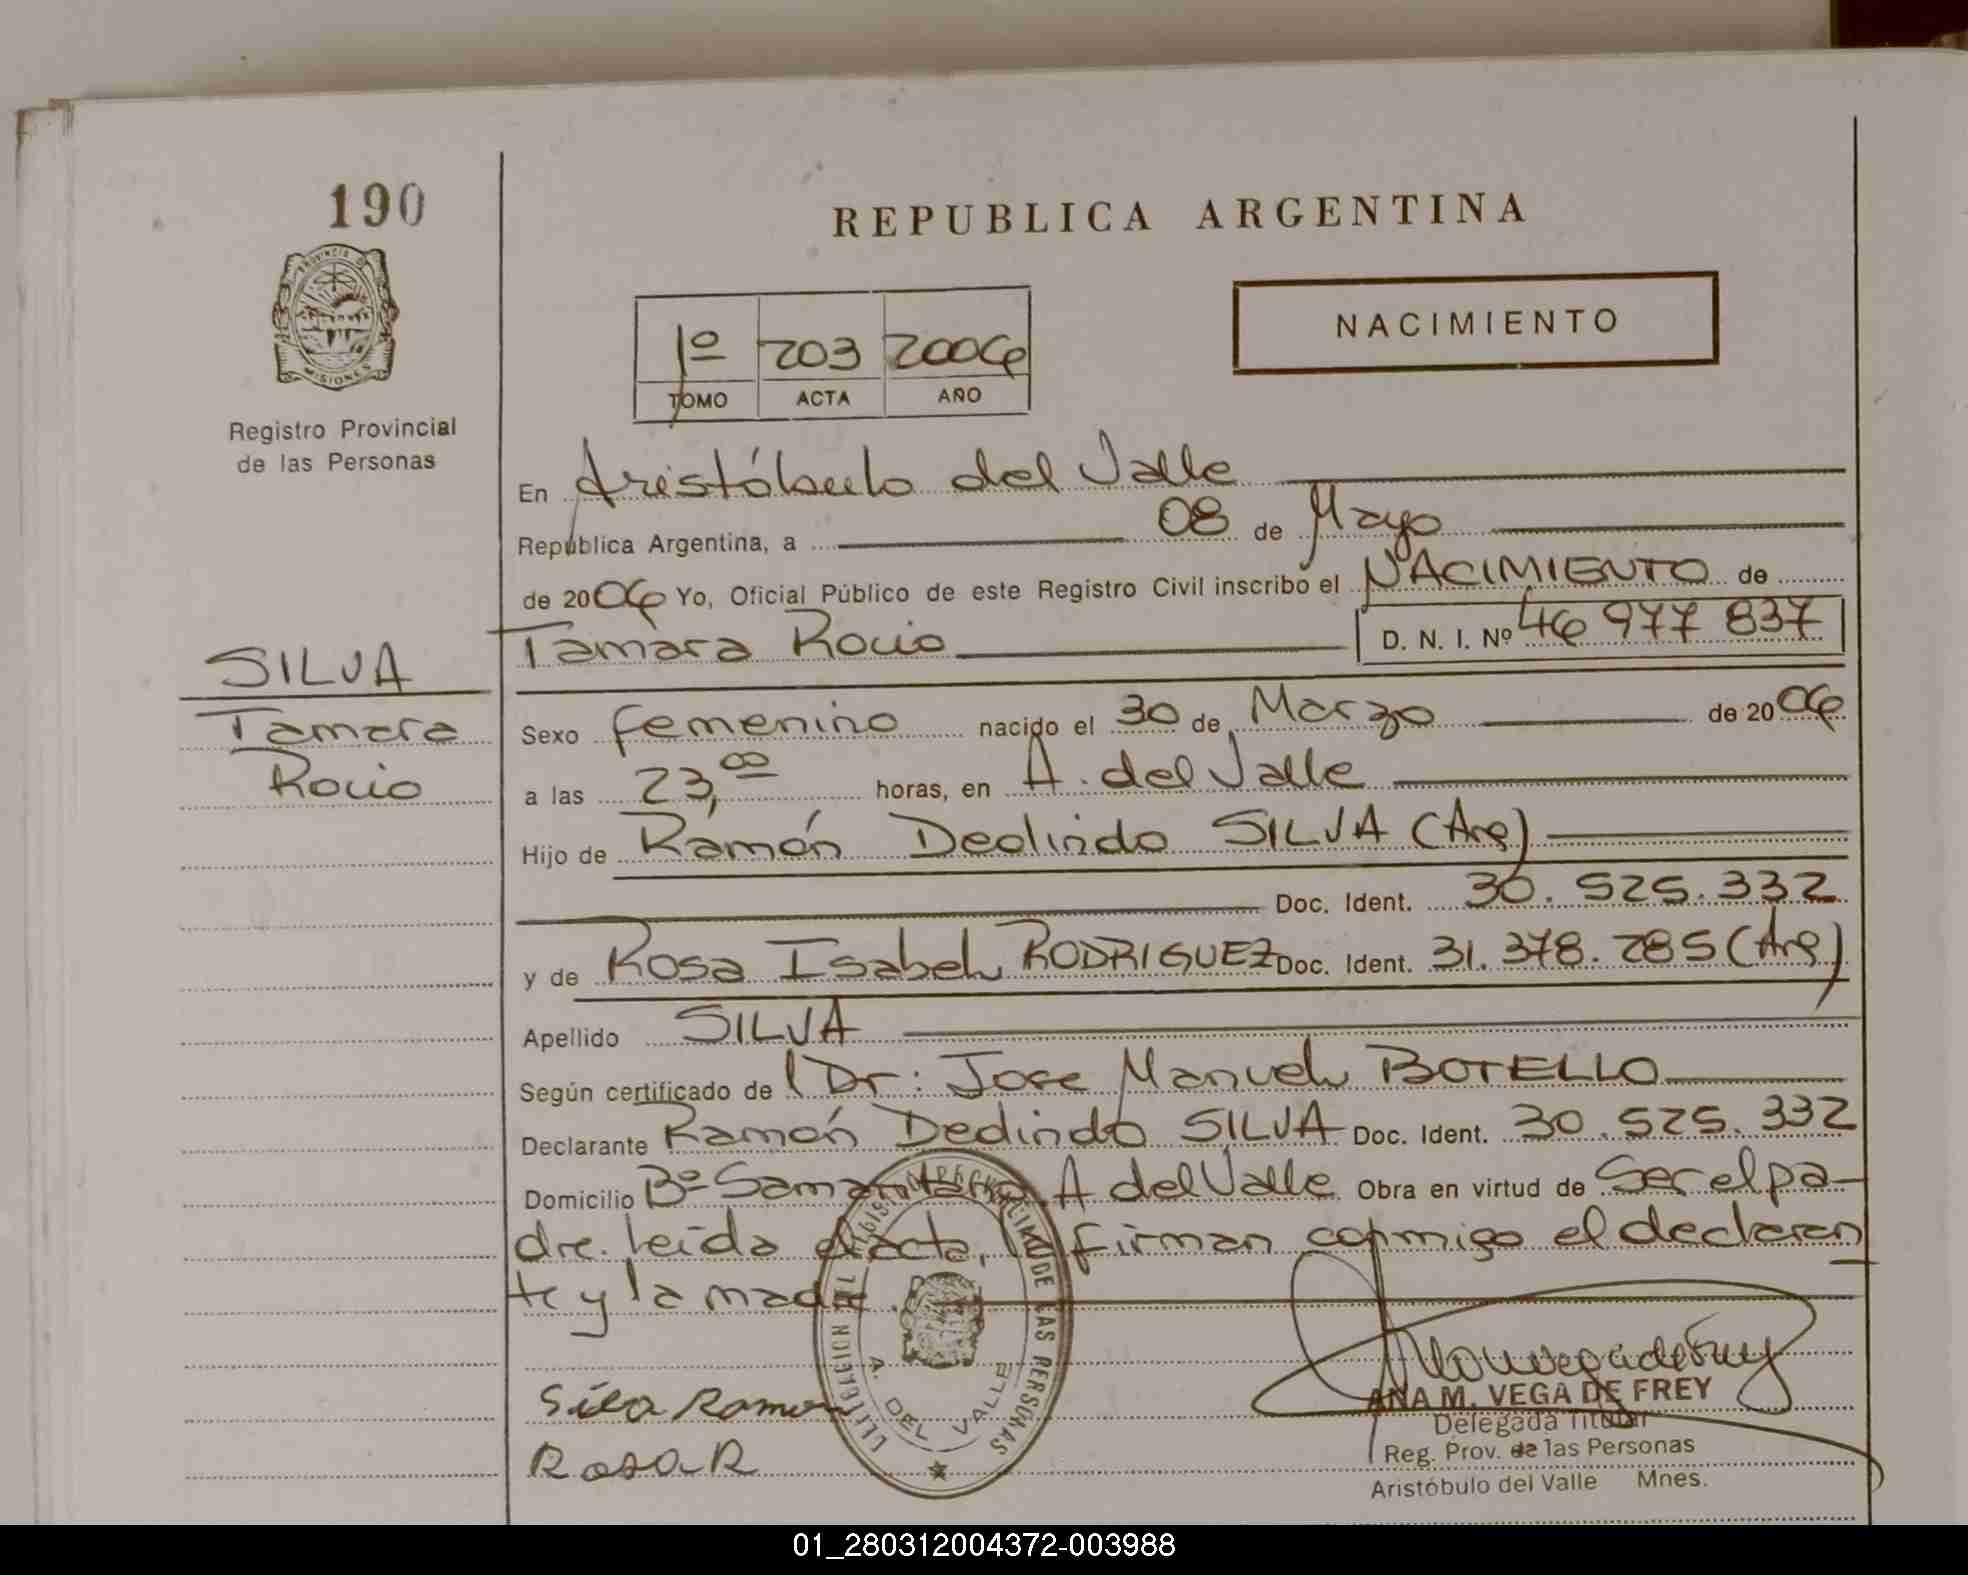 190
REPUBLICA ARGENTINA
PROVINCIA DE
MISIONES
Registro Provincial
de las Personas
NACIMIENTO
1º 203 2006
TOMO ACTA AÑO
En Aristóbulo del Valle
Republica Argentina, a 08 de Mayo
de 2006 Yo, Oficial Público de este Registro Civil inscribo el NACIMIENTO de
Tamara Rocio D. N. I. Nº 46 977 837
SILVA
Tamara
Rocio
Sexo femenino nacido el 30 de Marzo de 2006
a las 23,00 horas, en A. del Valle
Hijo de Ramón Deolindo SILVA (Arg)
Doc. Ident. 30.525.332
y de Rosa Isabel RODRIGUEZ Doc. Ident. 31.378.285 (Arg)
Apellido SILVA
Según certificado de Dr: Jose Manuel BOTELLO
Declarante Ramón Deolindo SILVA Doc. Ident. 30.525.332
Domicilio Bº Samaritano A del Valle Obra en virtud de Ser el pa-
dre. leida el acta, la firman conmigo el declaran
te y la madre.
A. DEL VALLE
DE LAS PERSONAS
Silva Ramon
Rosa R
ANA M. VEGA DE FREY
Delegada Titular
Reg. Prov. de las Personas
Aristóbulo del Valle Mnes.
01_280312004372-003988